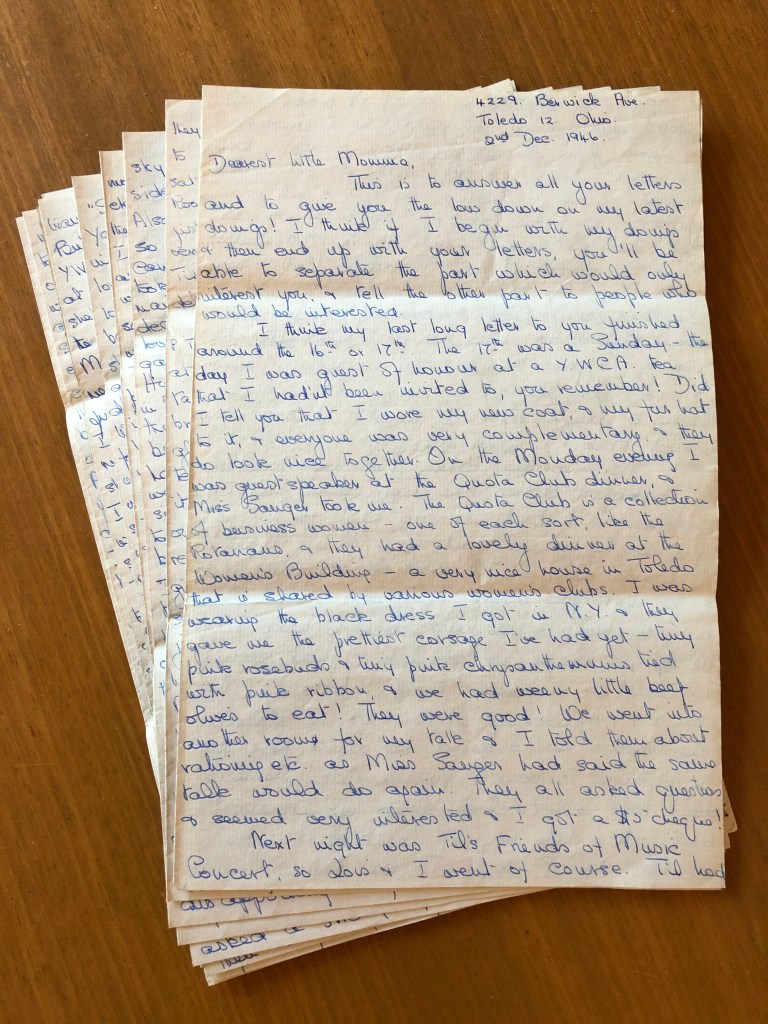 4229. Berwick Ave.
Toledo 12. Ohio.
2nd Dec. 1946.
Dearest little Momma,
This is to answer all your letters
and to give you the low down on my latest
doings! I think if I begin with my doings
& then end up with your letters, you'll be
able to separate the part which would only
interest you, & tell the other part to people who
would be interested.
I think my last long letter to you finished
around the 16th or 17th. The 17th was a Sunday – the
day I was guest of honour at a Y.W.C.A. tea
that I hadn't been invited to, you remember! Did
I tell you that I wore my new coat, & my fur hat
to it, & everyone was very complementary, & they
do look nice together. On the Monday evening I
was guest speaker at the Quota Club dinner, &
Miss Sanger took me. The Quota Club is a collection
of business women – one of each sort, like the
& they had a lovely dinner at the
Women's Building – a very nice house in Toledo
that is shared by various womens clubs. I was
wearing the black dress I got in N.Y. & they
gave me the prettiest corsage I've had yet – tiny
pink rosebuds & tiny pink chrysanthemums tied
with pink ribbon, & we had weeny little beef
olives to eat! They were good! We went into
another room for my talk & I told them about
rationing etc. as Miss Sanger had said the same
talk would do again. They all asked questions
& seemed very interested & I got a $5 cheque!
Next night was Til's Friends of Music
Concert, so Lois & I went of course. Til had